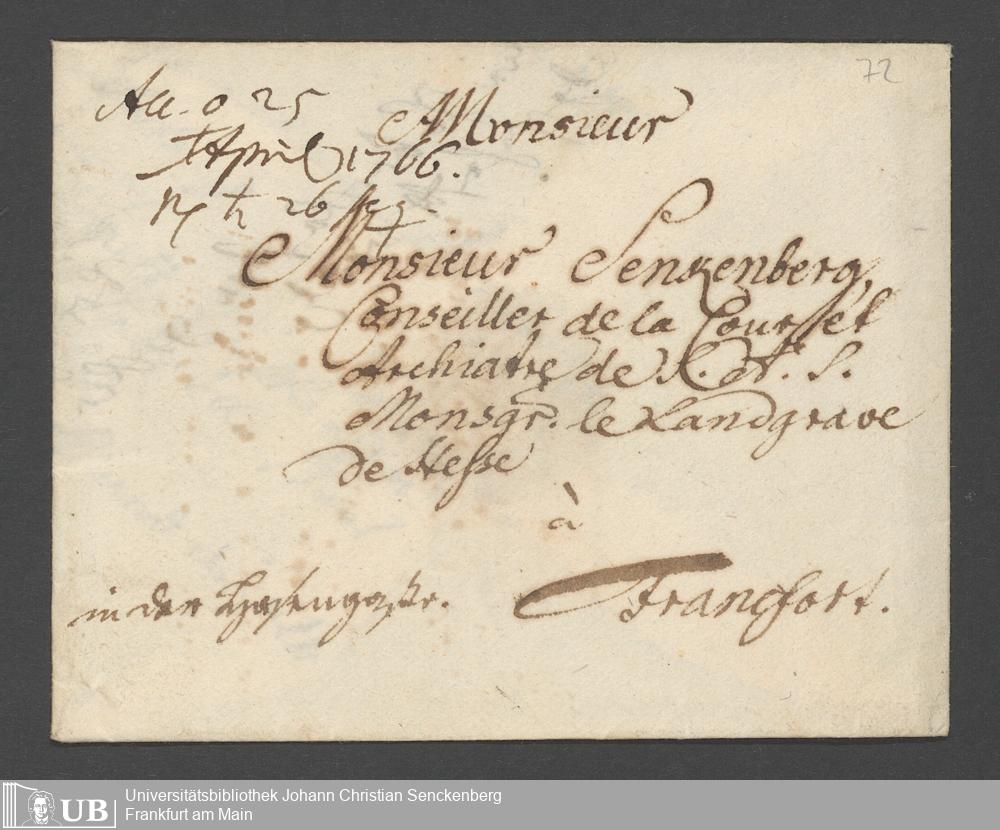 72
Acc. 25
April 1766.
26
Monsieur
Monsieur Senkenberg,
Conseiller de la Cour et
Archiatre de S. A. S.
Monsgr. le Landgrave
de Hesse
à
Francfort.
in der Hasengaße.
UB
Universitätsbibliothek Johann Christian Senckenberg
Frankfurt am Main